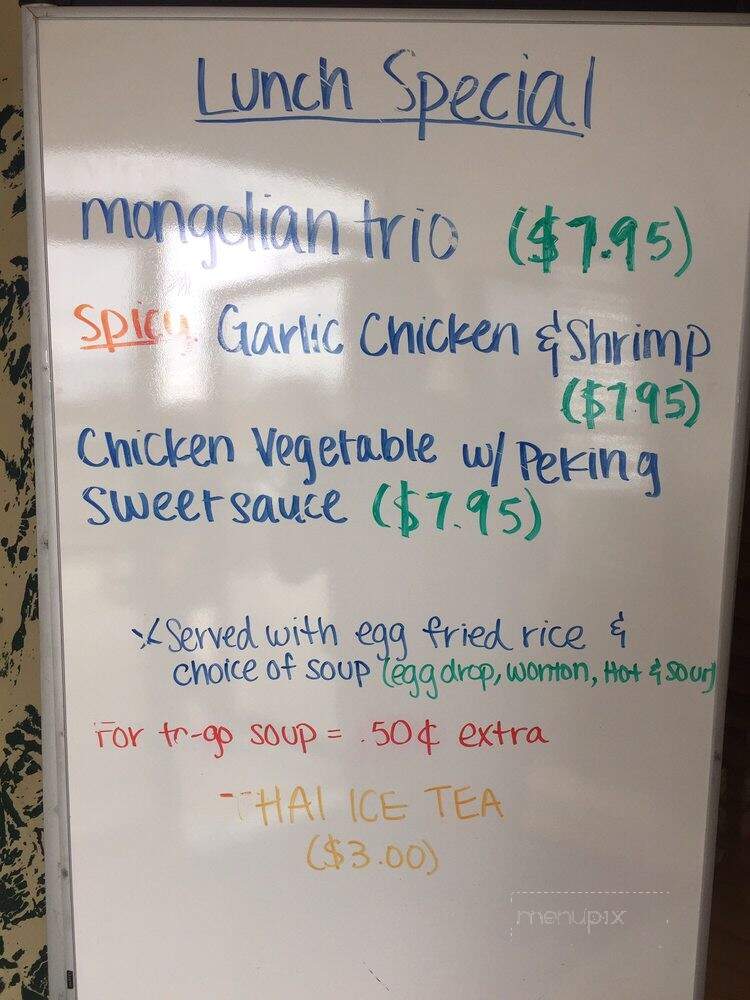 Lunch Special
mongolian trio ($7.95)
Spicy Garlic Chicken & Shrimp
($795)
Chicken Vegetable w/ Peking
Sweet sauce ($7.95)
* Served with egg fried rice &
choice of soup (egg drop, wonton, Hot & Sour)
For to-go soup = .50¢ extra
THAI ICE TEA
($3.00)
menupix